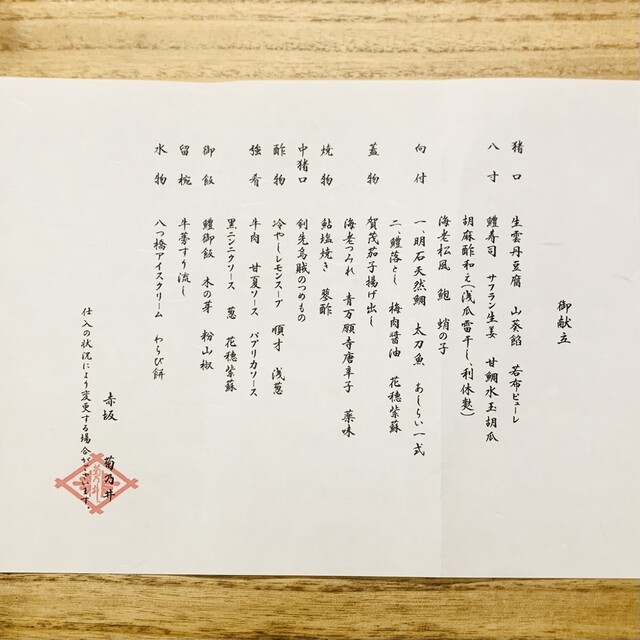 御献立
猪口　生雲丹豆腐　山葵餡　若布ピューレ
八寸　鱧寿司　サフラン生姜　甘鯛水玉胡瓜
胡麻酢和え（浅瓜雷干し、利休麩）
海老松風　鮑　蛸の子
向付　一、明石天然鯛　太刀魚　あしらい一式
二、鱧落とし　梅肉醤油　花穂紫蘇
蓋物　賀茂茄子揚げ出し
海老つみれ　青万願寺唐辛子　薬味
焼物　鮎塩焼き　蓼酢
中猪口　剣先烏賊のつめもの
酢物　冷やしレモンスープ　順才　浅葱
強肴　牛肉　甘夏ソース　パプリカソース
黒ニンニクソース　葱　花穂紫蘇
御飯　鱧御飯　木の芽　粉山椒
留椀　牛蒡すり流し
水物　八つ橋アイスクリーム　わらび餅
赤坂　菊乃井
仕入の状況により変更する場合がございます。
菊乃井